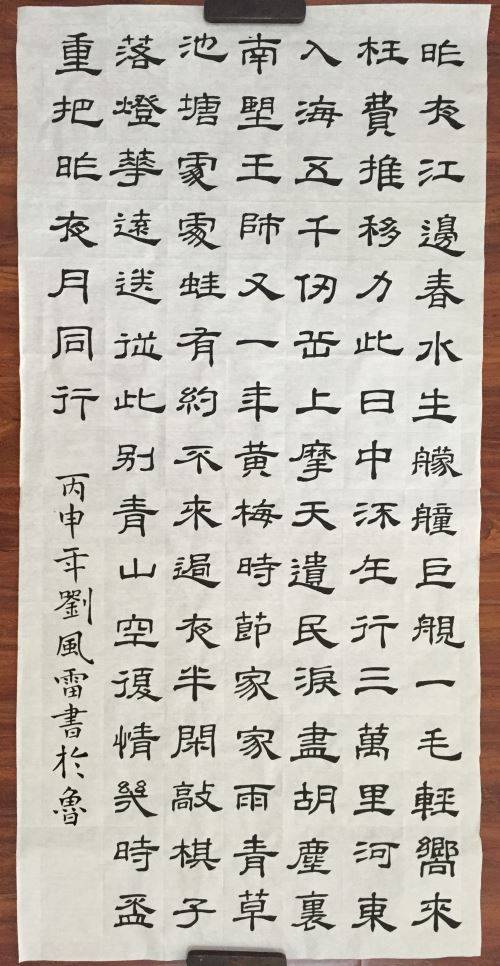 昨夜江邊春水生艨艟巨艦一毛輕嚮來
枉費推移力此日中流在行三萬里河東
入海五千仞岳上摩天遺民淚盡胡塵裏
南望王師又一年黃梅時節家家雨青草
池塘處處蛙有約不來過夜半閑敲棋子
落燈華遠送從此別青山空復情幾時盃
重把昨夜月同行
丙申年劉風雷書於魯